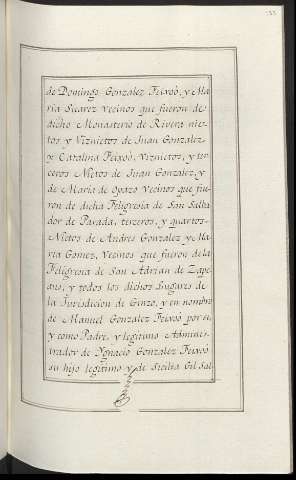 de Domingo Gonzalez Feixoó, y Ma
ria Suarez Vecinos que fueron de
dicho Monasterio de Rivera nie
tos y Viznietos de Juan Gonzalez,
y Catalina Feixoó, Viznietos, y ter
ceros Nietos de Juan Gonzalez y
de Maria de Opazo Vecinos que fue
ron de dicha Feligresia de San Salba
dor de Parada, terceros, y quartos
Nietos de Andres Gonzalez y Ma
ria Gomez, Vecinos que fueron de la
Feligresia de San Adrian de Zape
aus, y todos los dichos Lugares de
la Jurisdicion de Ginzo, y en nombre
de Manuel Gonzalez Feixoó por si,
y como Padre, y legitimo Adminis
trador de Ygnacio Gonzalez Feixoó
su hijo legitimo y de Sicilia Gil Sal